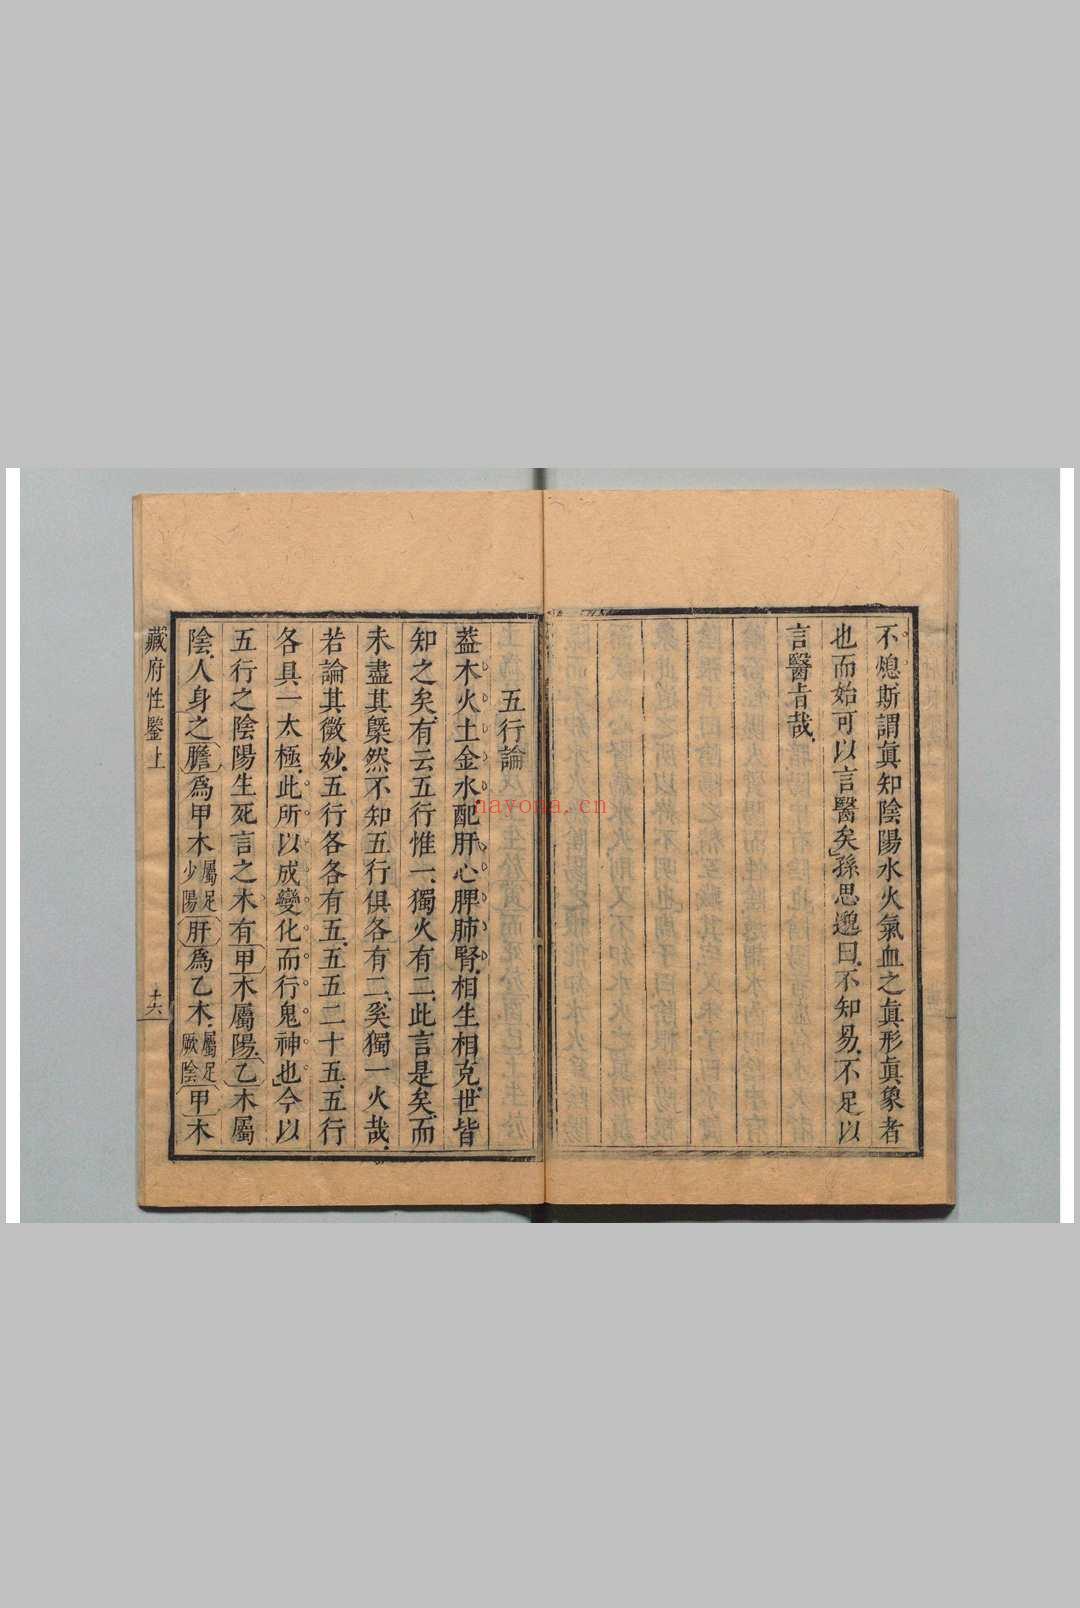 不熄斯謂眞知陰陽水火氣血之眞形眞象者
也而始可以言醫矣孫思邈曰不知易不足以
言醫旨哉
五行論
葢木火土金水配肝心脾肺腎相生相克世皆
知之矣有云五行惟一獨火有二此言是矣而
未盡其槩然不知五行俱各有二奚獨一火哉
若論其微妙五行各各有五五五二十五五行
各具一太極此所以成變化而行鬼神也今以
五行之陰陽生死言之木有甲木屬陽乙木屬
陰人身之膽爲甲木屬足少陽肝爲乙木屬足厥陰甲木
藏府性鑒上
十六
nayona.cn